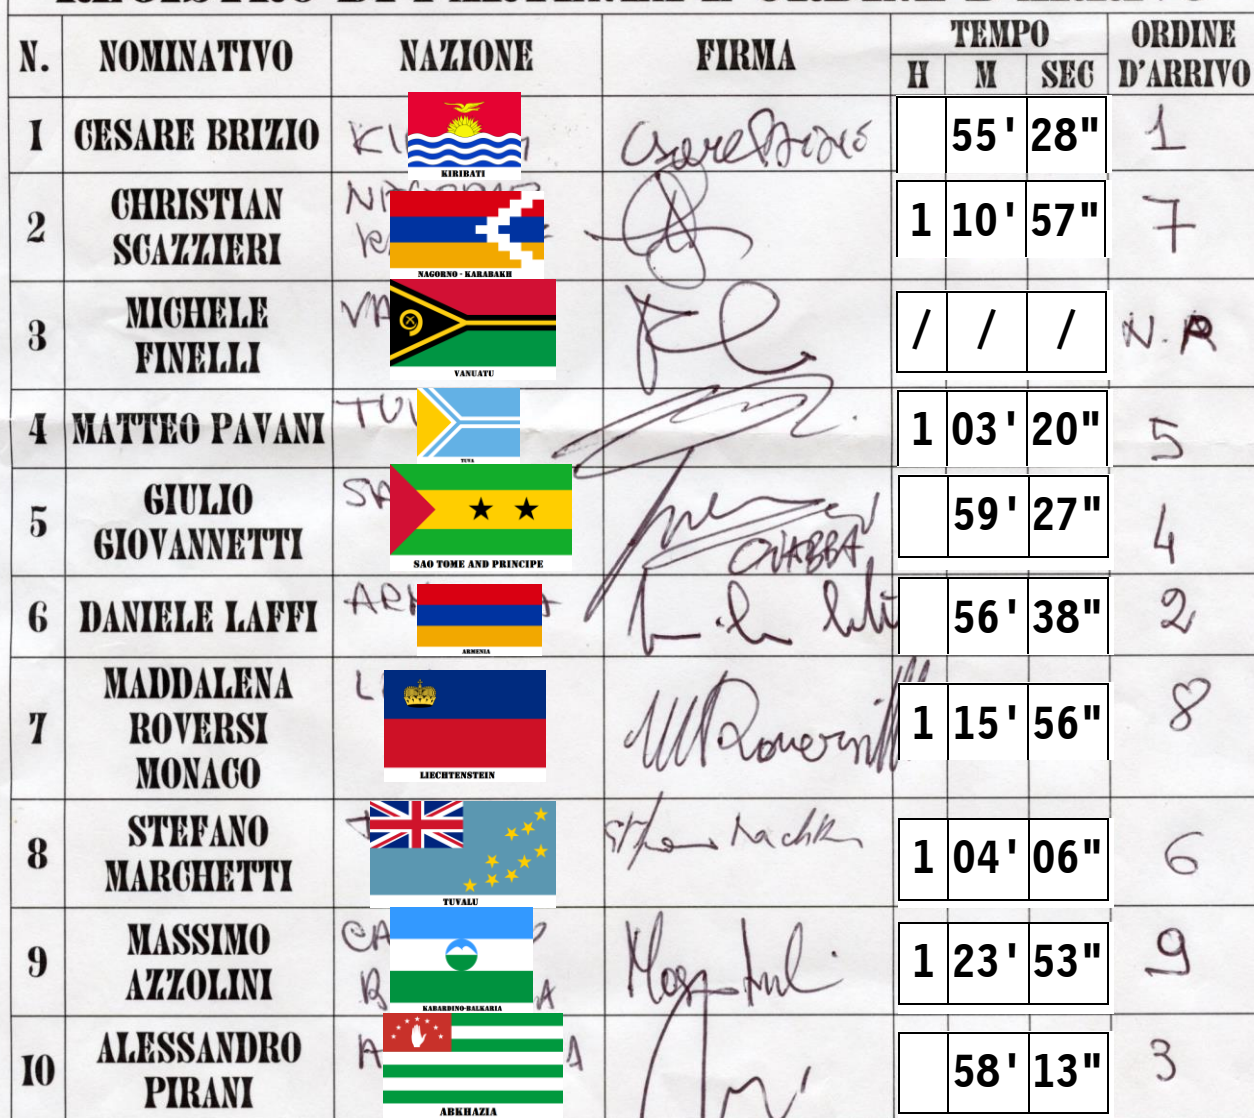 N. NOMINATIVO NAZIONE FIRMA TEMPO ORDINE D'ARRIVO
H M SEC
1 CESARE BRIZIO KI KIRIBATI 55' 28" 1
2 CHRISTIAN SCAZZIERI NAGORNO - KARABAKH 1 10' 57" 7
3 MICHELE FINELLI VA VANUATU / / / N.P.
4 MATTEO PAVANI TUV TUVA 1 03' 20" 5
5 GIULIO GIOVANNETTI SA SAO TOME AND PRINCIPE 59' 27" 4
6 DANIELE LAFFI ARM ARMENIA 56' 38" 2
7 MADDALENA ROVERSI MONACO L LIECHTENSTEIN 1 15' 56" 8
8 STEFANO MARCHETTI TUVALU 1 04' 06" 6
9 MASSIMO AZZOLINI CA B KABARDINO-BALKARIA 1 23' 53" 9
10 ALESSANDRO PIRANI A A ABKHAZIA 58' 13" 3